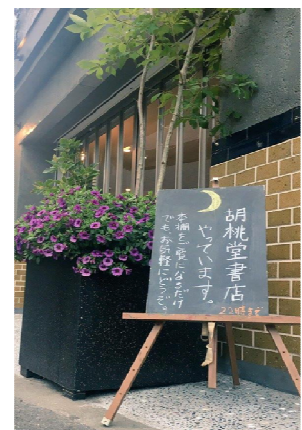 胡桃堂書店
やっています。
本棚をご覧になるだけ
でも、お気軽にどうぞ。
20時まで